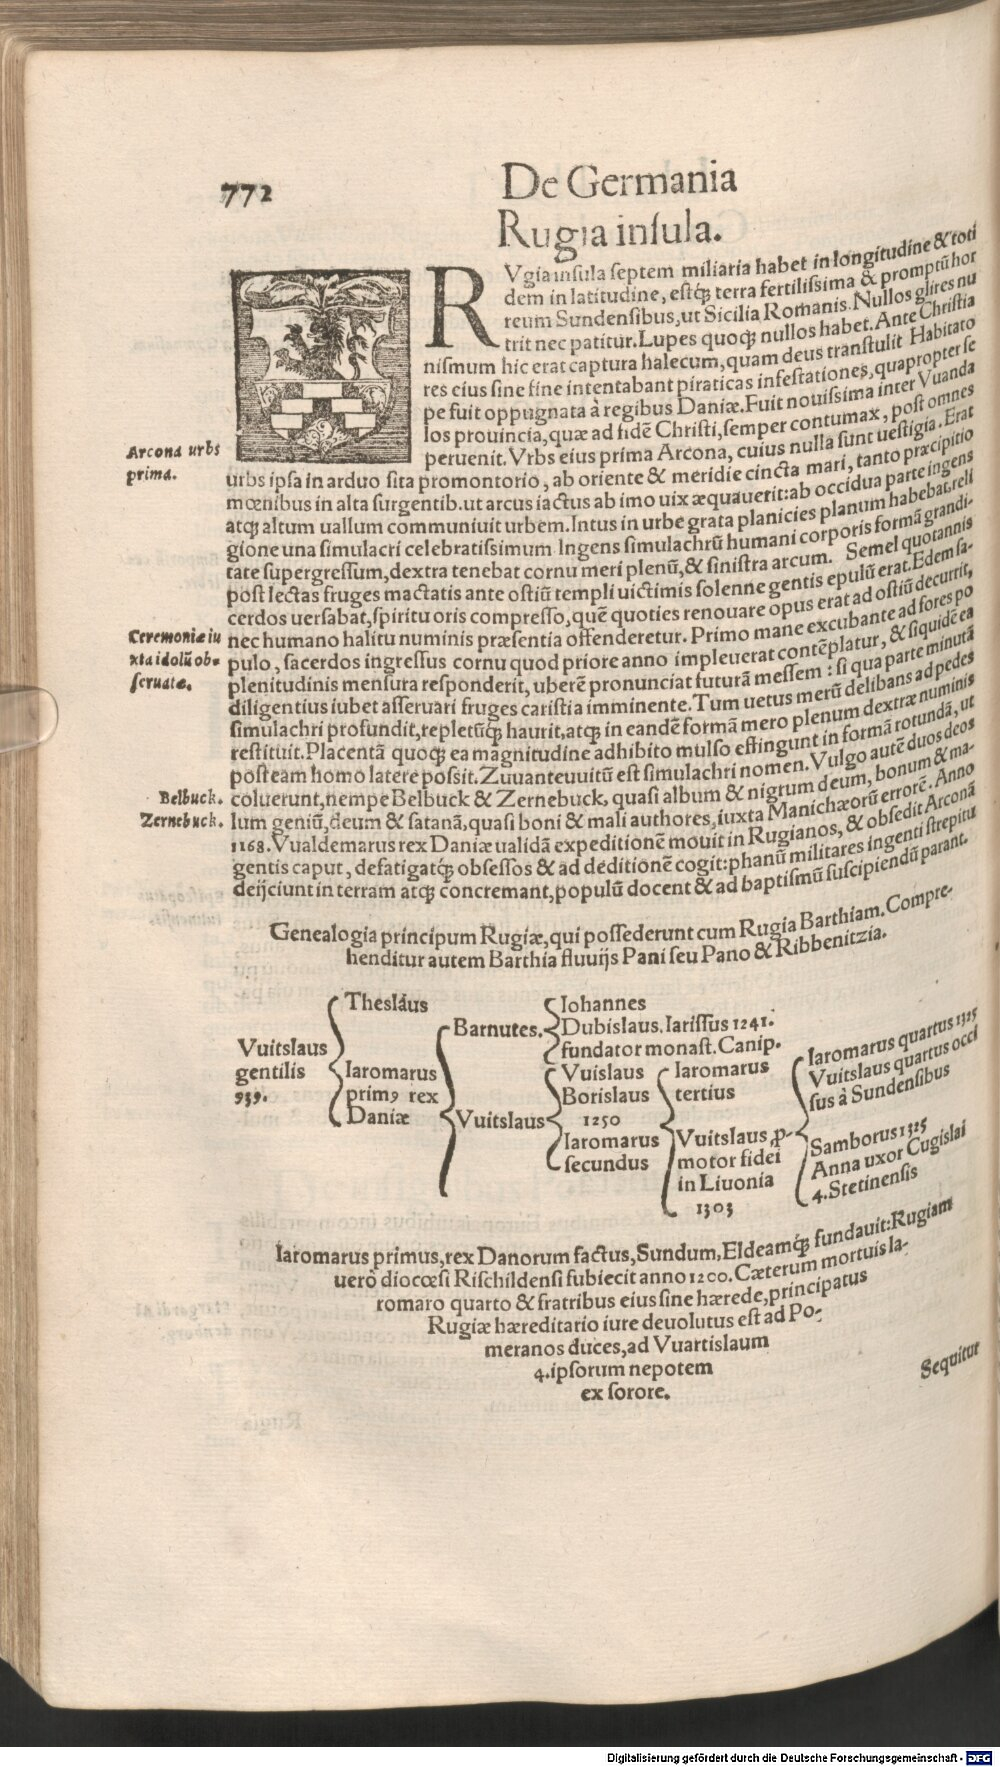 772
De Germania
Rugia inſula.
RVgia inſula ſeptem miliaria habet in longitudine & toti
dem in latitudine, eſtq́; terra fertiliſſima & promptũ hor
reum Sundenſibus, ut Sicilia Romanis. Nullos glires nu
trit nec patitur. Lupes quoq; nullos habet. Ante Chriſtia
niſmum hic erat captura halecum, quam deus tranſtulit Habitato
res eius ſine fine intentabant piraticas infeſtationes, quapropter ſe
pe fuit oppugnata à regibus Daniæ. Fuit nouiſsima inter Vuanda
los prouincia, quæ ad fidẽ Chriſti, ſemper contumax, poſt omnes
peruenit. Vrbs eius prima Arcona, cuius nulla ſunt ueſtigia. Erat
Arcona urbs
prima.
urbs ipſa in arduo ſita promontorio, ab oriente & meridie cincta mari, tanto præcipitio
mœnibus in alta ſurgentib. ut arcus iactus ab imo uix æquauerit: ab occidua parte ingens
atq; altum uallum communiuit urbem. Intus in urbe grata planicies planum habebat, reli
gione una ſimulacri celebratiſsimum Ingens ſimulachrũ humani corporis formã grandi-
tate ſupergreſſum, dextra tenebat cornu meri plenũ, & ſiniſtra arcum. Semel quotannis
poſt lectas fruges mactatis ante oſtiũ templi uictimis ſolenne gentis epulũ erat. Edem ſa-
cerdos uerſabat, ſpiritu oris compreſſo, quẽ quoties renouare opus erat ad oſtiũ decurrit,
Ceremoniæ iu
xta idolũ ob-
ſeruatæ.
nec humano halitu numinis præſentia offenderetur. Primo mane excubante ad fores po
pulo, ſacerdos ingreſſus cornu quod priore anno impleuerat contẽplatur, & ſiquidẽ ea
plenitudinis menſura reſponderit, uberẽ pronunciat futurã meſſem: ſi qua parte minutã
diligentius iubet aſſeruari fruges cariſtia imminente. Tum uetus merũ delibans ad pedes
ſimulachri profundit, repletũq; haurit, atq; in eandẽ formã mero plenum dextræ numinis
reſtituit. Placentã quoq; ea magnitudine adhibito mulſo effingunt in formã rotundã, ut
poſt eam homo latere poſsit. Zuuanteuuitũ eſt ſimulachri nomen. Vulgo autẽ duos deos
Belbuck.
Zernebuck.
coluerunt, nempe Belbuck & Zernebuck, quaſi album & nigrum deum, bonum & ma-
lum geniũ, deum & ſatanã, quaſi boni & mali authores, iuxta Manichæorũ errorẽ. Anno
1168. Vualdemarus rex Daniæ ualidã expeditionẽ mouit in Rugianos, & obſedit Arconã
gentis caput, defatigatq́; obſeſſos & ad deditionẽ cogit: phanũ militares ingenti ſtrepitu
deijciunt in terram atq; concremant, populũ docent & ad baptiſmũ ſuſcipiendũ parant.
Genealogia principum Rugiæ, qui poſſederunt cum Rugia Barthiam. Compre-
henditur autem Barthia fluuijs Pani ſeu Pano & Ribbenitzia.
Vuitslaus
gentilis
939.
Theslaus
Iaromarus
primꝰ rex
Daniæ
Barnutes.
Vuitslaus
Iohannes
Dubislaus. Iariſſus 1241.
fundator monaſt. Canip.
Vuislaus
Borislaus
1250
Iaromarus
ſecundus
Iaromarus
tertius
Vuitslaus, ꝓ-
motor fidei
in Liuonia
1303
Iaromarus quartus 1325
Vuitslaus quartus occi
ſus à Sundenſibus
Samborus 1325
Anna uxor Cugislai
4. Stetinenſis
Iaromarus primus, rex Danorum factus, Sundum, Eldeamq́; fundauit: Rugiam
uerò diocœſi Riſchildenſi ſubiecit anno 1200. Cæterum mortuis Ia-
romaro quarto & fratribus eius ſine hærede, principatus
Rugiæ hæreditario iure deuolutus eſt ad Po-
meranos duces, ad Vuartislaum
4. ipſorum nepotem
ex ſorore.
Sequitur
Digitalisierung gefördert durch die Deutsche Forschungsgemeinschaft - DFG